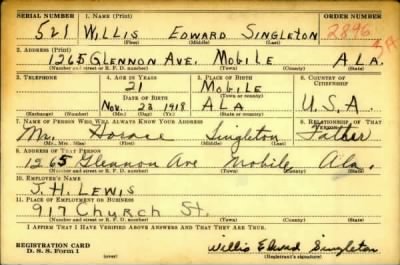 SERIAL NUMBER 1. NAME (Print) ORDER NUMBER
521 WILLIS EDWARD SINGLETON 2896
(First) (Middle) (Last)
2. ADDRESS (Print)
1265 GLENNON AVE. MOBILE ALA.
(Number and street or R. F. D. number) (Town) (County) (State)
3. TELEPHONE 4. AGE IN YEARS 5. PLACE OF BIRTH 6. COUNTRY OF CITIZENSHIP
21 MOBILE
DATE OF BIRTH (Town or county)
Nov. 23 1918 ALA U.S.A.
(Exchange) (Number) (Mo.) (Day) (Yr.) (State or country)
7. NAME OF PERSON WHO WILL ALWAYS KNOW YOUR ADDRESS 8. RELATIONSHIP OF THAT PERSON
Mr. Horace Singleton Father
(Mr., Mrs., Miss) (First) (Middle) (Last)
9. ADDRESS OF THAT PERSON
1265 Glennon Ave Mobile, Ala.
(Number and street or R. F. D. number) (Town) (County) (State)
10. EMPLOYER'S NAME
J. H. LEWIS
11. PLACE OF EMPLOYMENT OR BUSINESS
917 Church St.
(Number and street or R. F. D. number) (Town) (County) (State)
I AFFIRM THAT I HAVE VERIFIED ABOVE ANSWERS AND THAT THEY ARE TRUE.
REGISTRATION CARD
D. S. S. Form 1 (over) Willis Edward Singleton
(Registrant's signature)